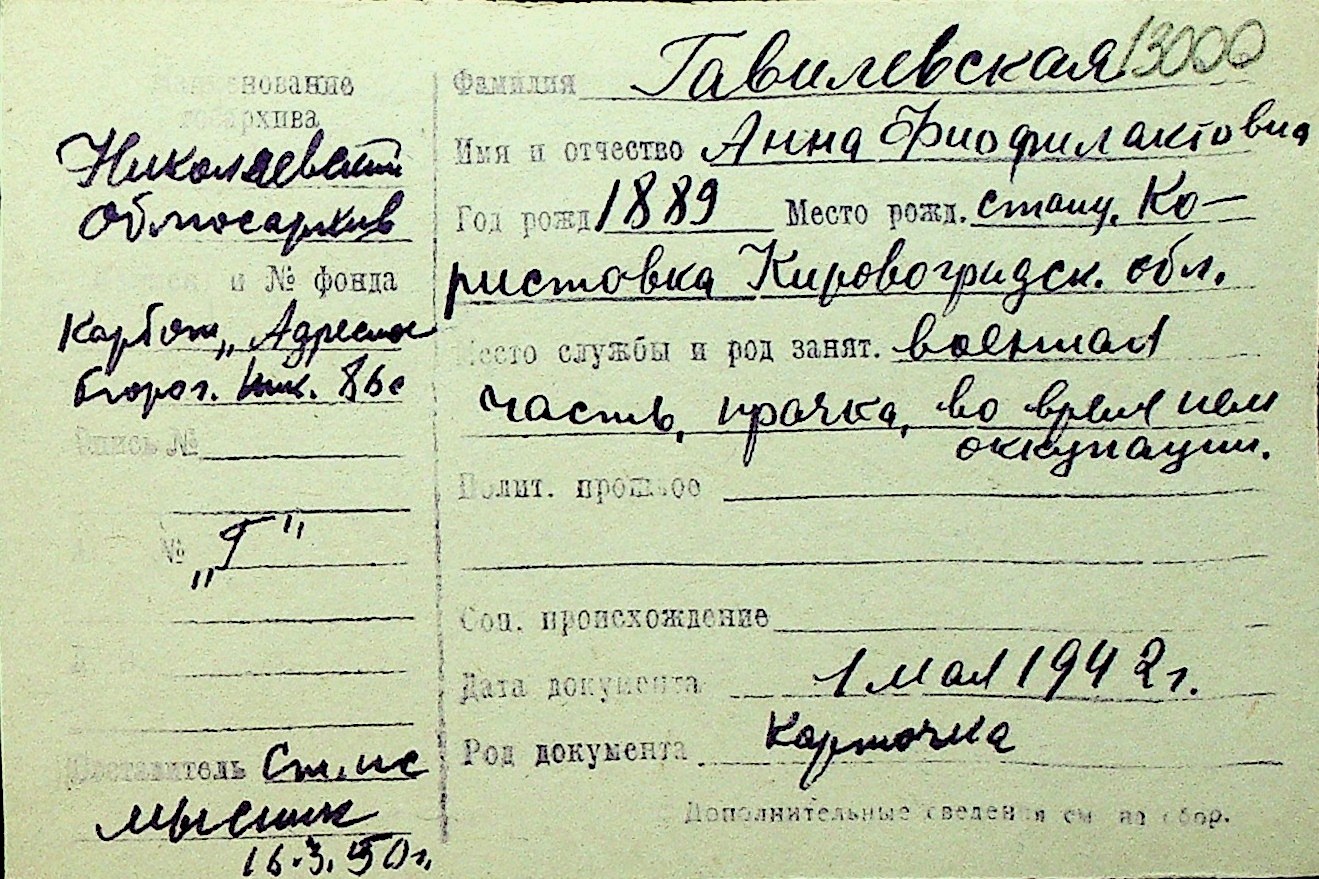 Наименование
госархива
Николаевский
Облгосархив
и № фонда
Карбют „Адресное
бюро г. Ник. 86с
Опись №
№ „Г"
Составитель Ст. ис
Мысник
16.3.50 г.
Фамилия Гавилевская 13000
Имя и отчество Анна Фиофилактовна
Год рожд 1889 Место рожд. станц. Ко-
ристовка Кировоградск. обл.
Место службы и род занят. военная
часть, прачка, во время нем
оккупации.
Полит. прошлое
Соц. происхождение
Дата документа 1 мая 1942 г.
Род документа карточка
Дополнительные сведения см на обор.